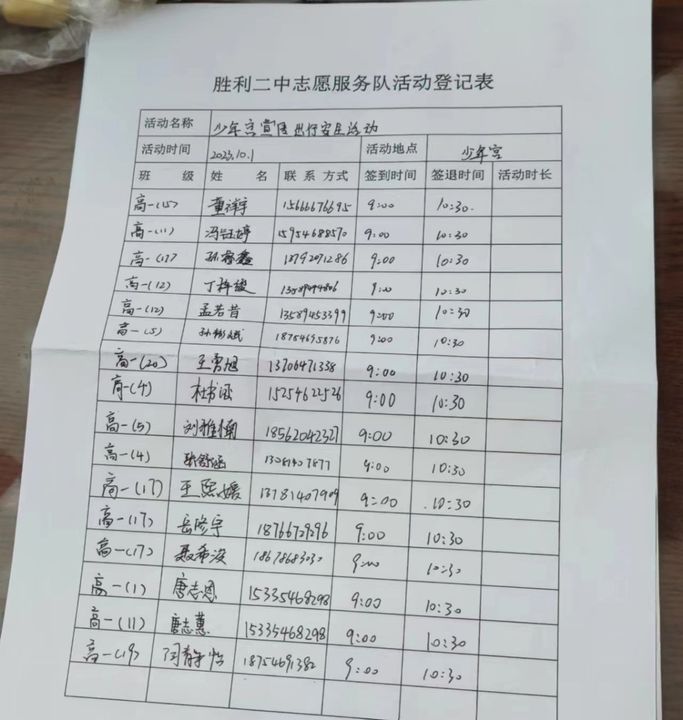 胜利二中志愿服务队活动登记表
活动名称 少年宫宣传出行安全活动
活动时间 2023.10.1 活动地点 少年宫
班 级 姓 名 联系方式 签到时间 签退时间 活动时长
高一(15) 董祥宇 15666676695 9:00 10:30.
高一(11) 冯钰婷 15954688570 9:00 10:30
高一(17) 孙睿鑫 18792071286 9:00 10:30
高一(12) 丁梓峻 9:00 10:30
高一(12) 孟若昔 13589453399 9:00 10:30
高一(5) 孙 18754695876 9:00 10:30
高一(20) 王 13706471338 9:00 10:30
高一(4) 杜书涵 15254622526 9:00 10:30
高一(5) 刘雅楠 18562042327 9:00 10:30
高一(4) 张舒涵 9:00 10:30
高一(17) 王熙媛 13181407909 9:00 10:30
高一(17) 岳修宇 18766729296 9:00 10:30
高一(17) 聂希浚 18678683030 9:00 10:30
高一(1) 唐志恩 15335468298 9:00 10:30
高一(11) 唐志蕙 15335468298 9:00 10:30
高一(19) 闫静怡 18754691382 9:00 10:30